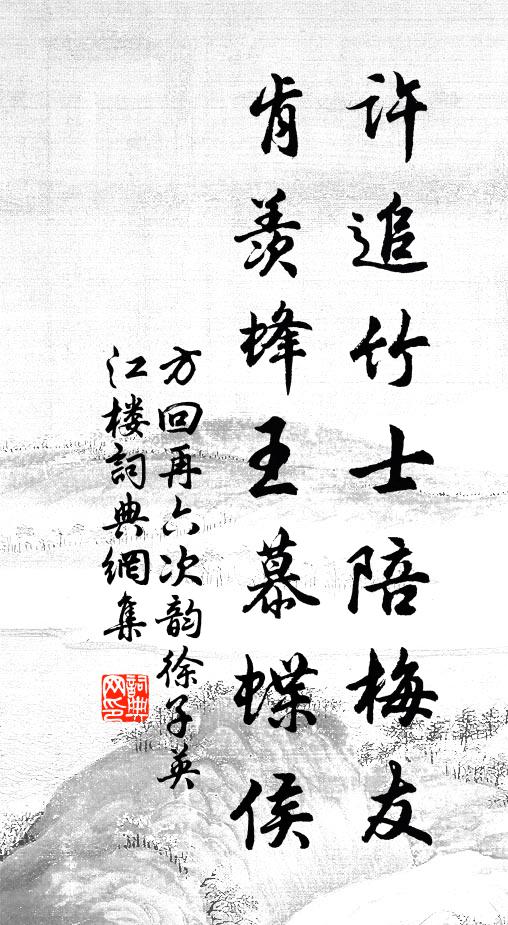 许追竹士陪梅友
肯羡蜂王慕蝶侯
方回再六次韵徐子英
江楼词典網集
詞典
网印